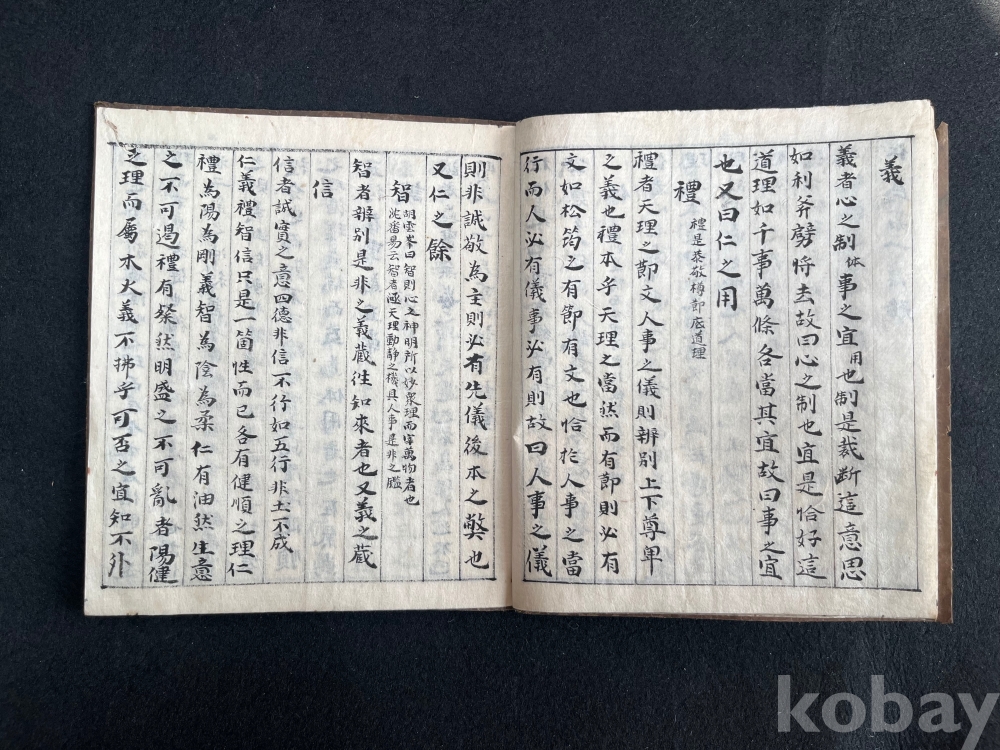 義
義者心之制体事之宜用也制是裁断這意思
如利斧劈將去故曰心之制也宜是恰好這
道理如千事萬條各當其宜故曰事之宜
也又曰仁之用
禮 禮是恭敬樽節底道理
禮者天理之節文人事之儀則辨別上下尊卑
之義也禮本乎天理之當然而有節則必有
文如松筠之有節有文也恰於人事之當
行而人必有儀事必有則故曰人事之儀
則非誠敬為主則必有先儀後本之獘也
又仁之餘
智 胡雲峯曰智則心之神明所以妙衆理而宰萬物者也
沈番易云智者涵天理動静之機具人事是非之鑑
智者辨別是非之義蔵徃知來者也又義之蔵
信
信者誠實之意四德非信不行如五行非土不成
仁義禮智信只是一箇性而已各有健順之理仁
禮為陽為剛義智為陰為柔仁有油然生意
之不可遏禮有粲然明盛之不可亂者陽健
之理而屬木火義不拂乎可否之宜知不外
kobay